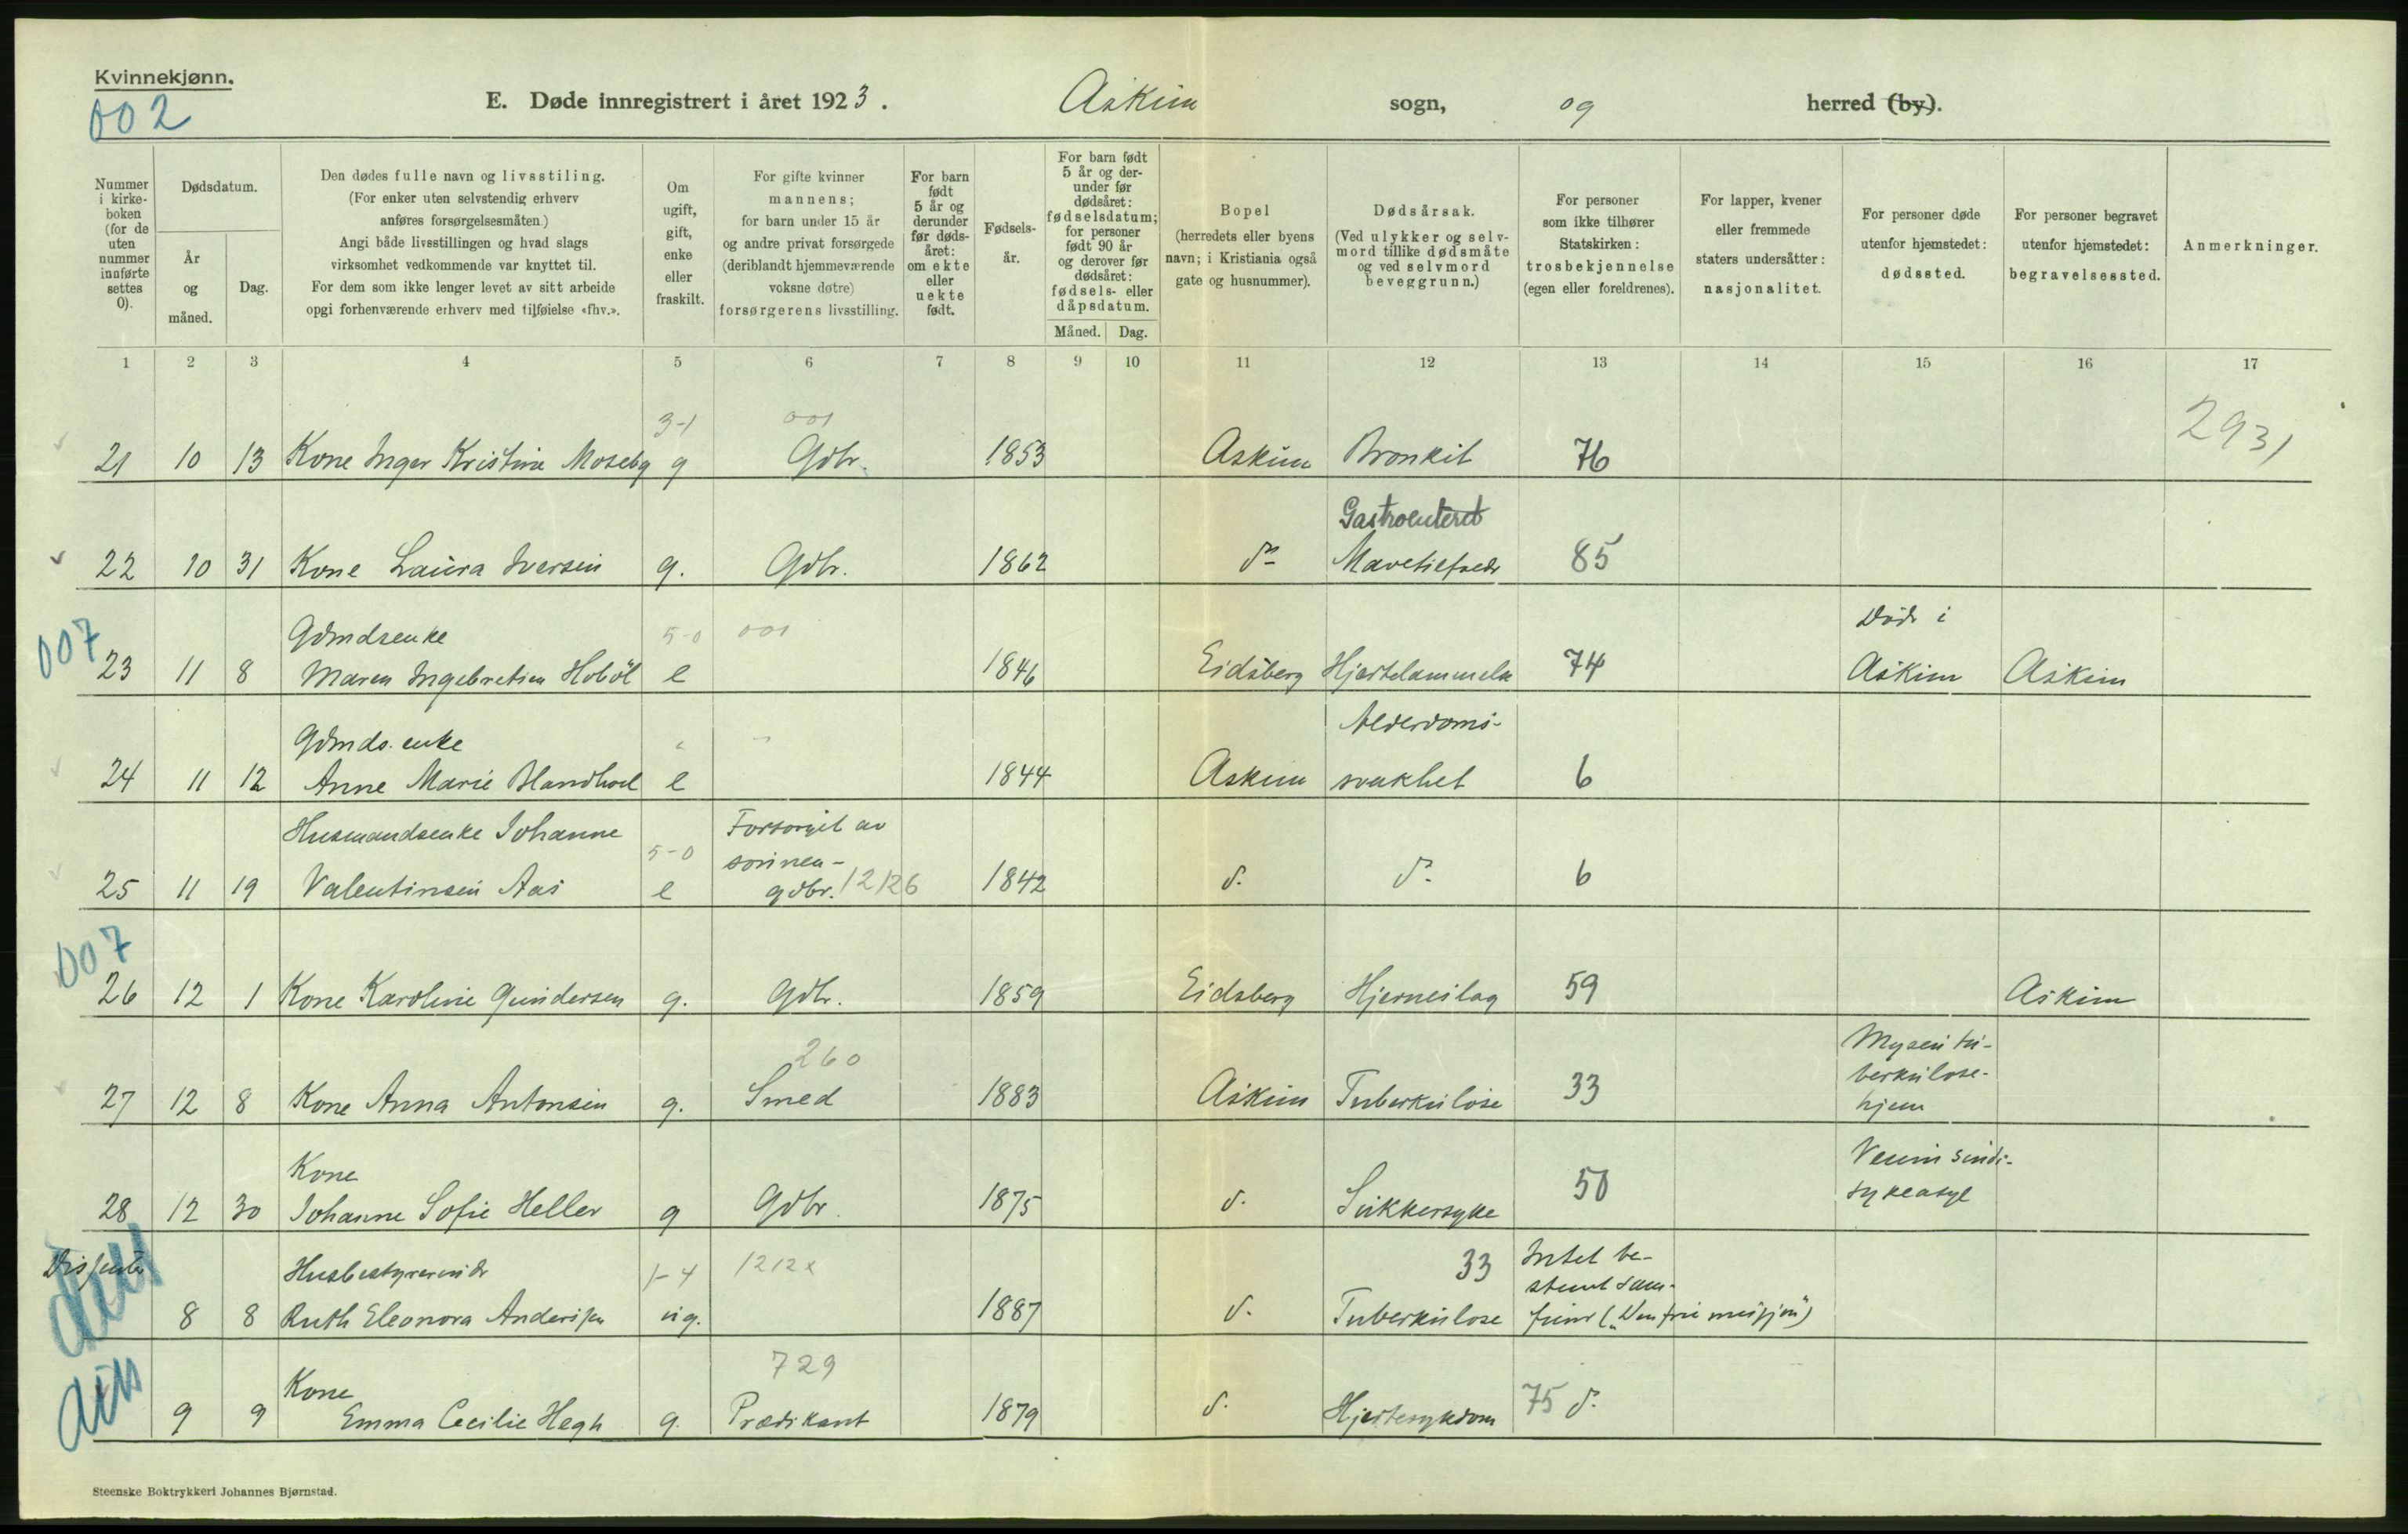 Kvinnekjønn.
002
E. Døde innregistrert i året 1923. Askim sogn, og herred (by).
Nummer i kirke-boken (for de uten nummer innførte settes 0).
Dødsdatum.
År og måned.
Dag.
Den dødes fulle navn og livsstiling.
(For enker uten selvstendig erhverv
anføres forsørgelsesmåten.)
Angi både livsstillingen og hvad slags
virksomhet vedkommende var knyttet til.
For dem som ikke lenger levet av sitt arbeide
opgi forhenværende erhverv med tilføielse «fhv.».
Om ugift, gift, enke eller fraskilt.
For gifte kvinner
mannens;
for barn under 15 år
og andre privat forsørgede
(deriblandt hjemmeværende
voksne døtre)
forsørgerens livsstilling.
For barn født 5 år og derunder før døds-året: om ekte eller uekte født.
Fødsels-år.
For barn født 5 år og der-under før dødsåret: fødselsdatum; for personer født 90 år og derover før dødsåret: fødsels- eller dåpsdatum.
Måned. Dag.
Bopel
(herredets eller byens
navn; i Kristiania også
gate og husnummer).
Dødsårsak.
(Ved ulykker og selv-
mord tillike dødsmåte
og ved selvmord
beveggrunn.)
For personer
som ikke tilhører
Statskirken:
trosbekjennelse
(egen eller foreldrenes).
For lapper, kvener
eller fremmede
staters undersåtter:
nasjonalitet.
For personer døde
utenfor hjemstedet:
dødssted.
For personer begravet
utenfor hjemstedet:
begravelsessted.
Anmerkninger.
1 2 3 4 5 6 7 8 9 10 11 12 13 14 15 16 17
3-1 001 2931
21 10 13 Kone Inger Kristine Moseby g Gdbr. 1853 Askim Bronkit 76
Gastroenterit
22 10 31 Kone Laura Iversen g. Gdbr. 1862 do 85
007 Gdmdsenke 5-0 001 Død i
23 11 8 Maren Ingebretsen Hobøl e 1846 Eidsberg Hjertelammelse 74 Askim Askim
Gdmds. enke Alderdoms-
24 11 12 Anne Marie e 1844 Askim svakhet 6
Husmandsenke Johanne 5-0 Forsørget av
sønnen-
25 11 19 Valentinsen Aas e gdbr. 12126 1842 d. do. 6
007
26 12 1 Kone Karoline Gundersen g. Gdbr. 1859 Eidsberg Hjerneslag 59 Askim
260 Mysen tu-
berkulose-
27 12 8 Kone Anna Antonsen g. Smed 1883 Askim Tuberkulose 33 hjem
Kone Veum sinds-
28 12 30 Johanne Sofie Heller g Gdbr. 1875 d. Sukkersyke 50 sykeasyl
Dissenter Husbestyrerinde 1-4 1212x 33 Intet be-
stemt sam-
8 8 Ruth Eleonora Andersen ug. 1887 d. Tuberkulose funn („Den frie misjon")
729
Kone
9 9 Emma Cecilie Hegh g. Prædikant 1879 d. Hjertesykdom 75 do.
Steenske Boktrykkeri Johannes Bjørnstad.